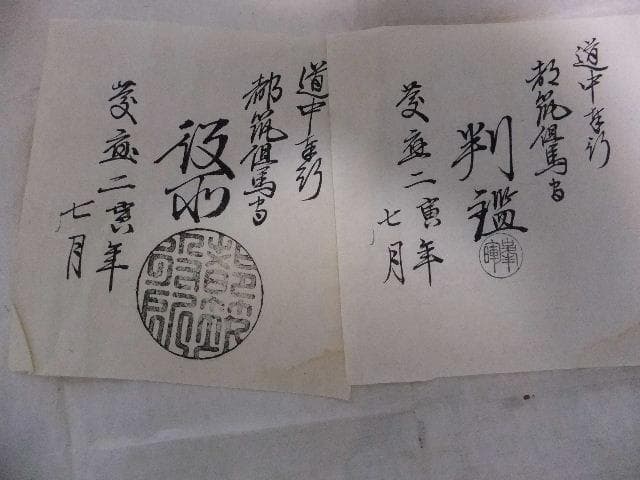 道中奉行
都筑但馬守
判鑑
峯暉
慶應二寅年
七月
道中奉行
都筑但馬守
役所
都筑
役所
慶應二寅年
七月